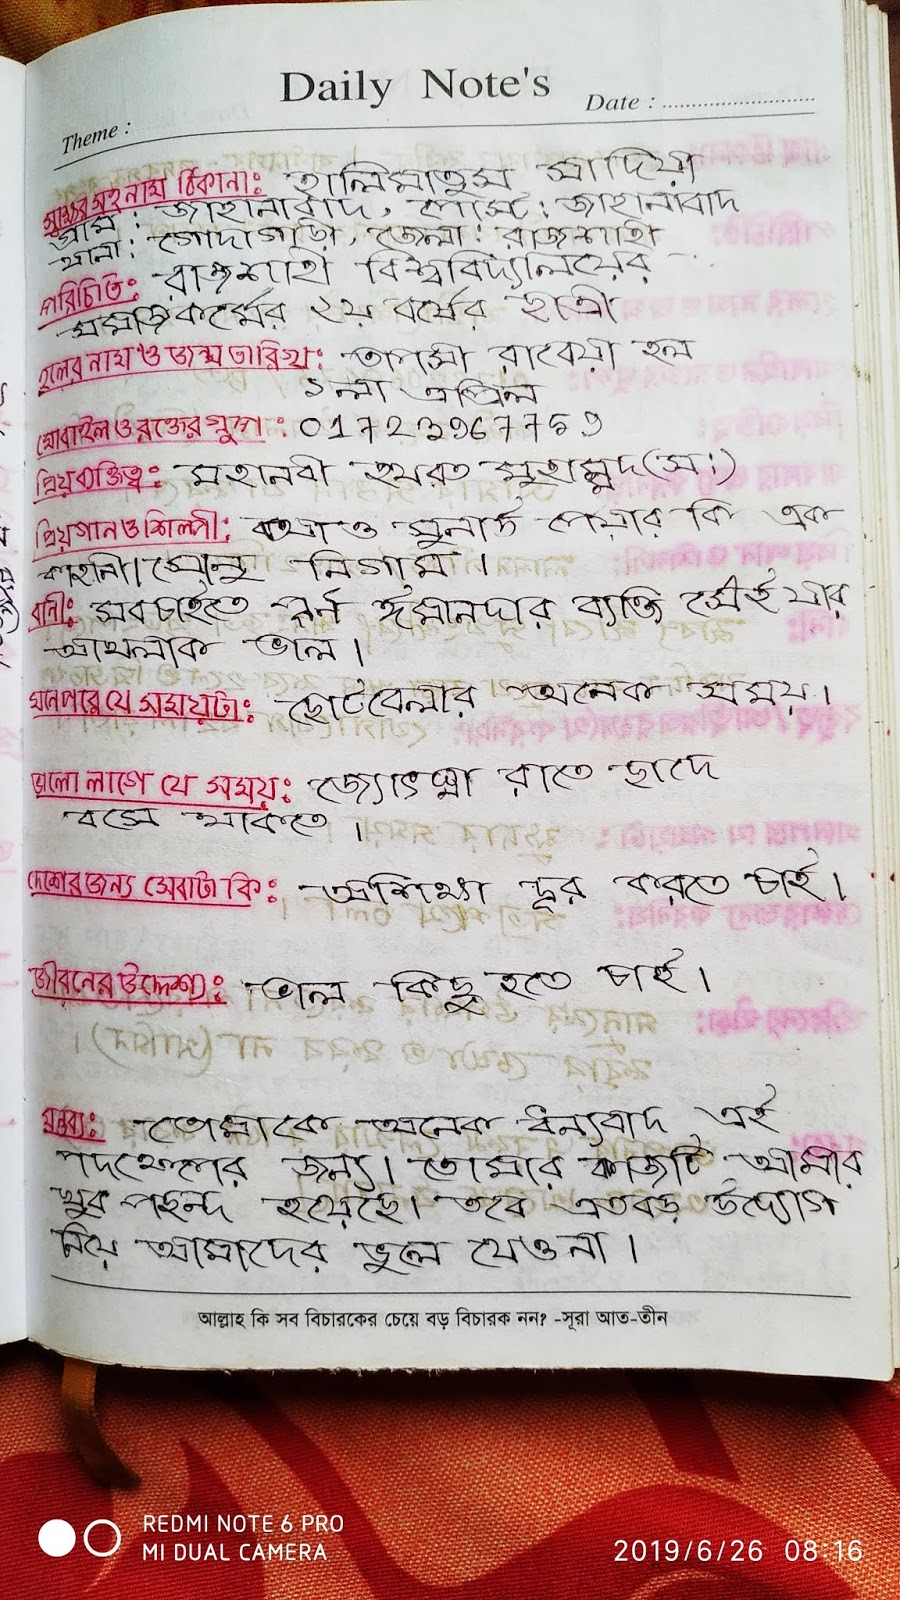 Daily Note's
Theme :
Date : ...........................
স্বাক্ষর সহ নাম ঠিকানা: হালিমাতুস সাদিয়া
গ্রাম : জাহানাবাদ, পোস্ট : জাহানাবাদ
থানা : গোদাগাড়ী, জেলা : রাজশাহী
পরিচিতি: রাজশাহী বিশ্ববিদ্যালয়ের
সমাজকর্মের ২য় বর্ষের ছাত্রী
হলের নাম ও জন্ম তারিখ: তাপসী রাবেয়া হল
১লা এপ্রিল
মোবাইল ও রক্তের গ্রুপ : 01723967759
প্রিয় ব্যক্তিত্ব: মহানবী হযরত মুহাম্মদ (স:)
প্রিয় গান ও শিল্পী: কথা ও পেয়ার কি এক
কাহানী। সোনু নিগাম।
বানী: সবচাইতে পূর্ন ঈমানদার ব্যক্তি সেই যার
আখলাক ভাল।
মনে পরে যে সময়টা: ছোটবেলার অনেক সময়।
ভালো লাগে যে সময়: জ্যোৎস্না রাতে ছাদে
বসে থাকতে।
দেশের জন্য সেবাটা কি: অশিক্ষা দূর করতে চাই।
জীবনের উদ্দেশ্য: ভাল কিছু হতে চাই।
মন্তব্য: তোমাকে অনেক ধন্যবাদ এই
পদক্ষেপের জন্য। তোমার কাজটি আমার
খুব পছন্দ হয়েছে। তবে এতবড় উদ্যোগ
নিয়ে আমাদের ভুলে যেওনা।
আল্লাহ কি সব বিচারকের চেয়ে বড় বিচারক নন? -সূরা আত-তীন
REDMI NOTE 6 PRO
MI DUAL CAMERA
2019/6/26 08:16